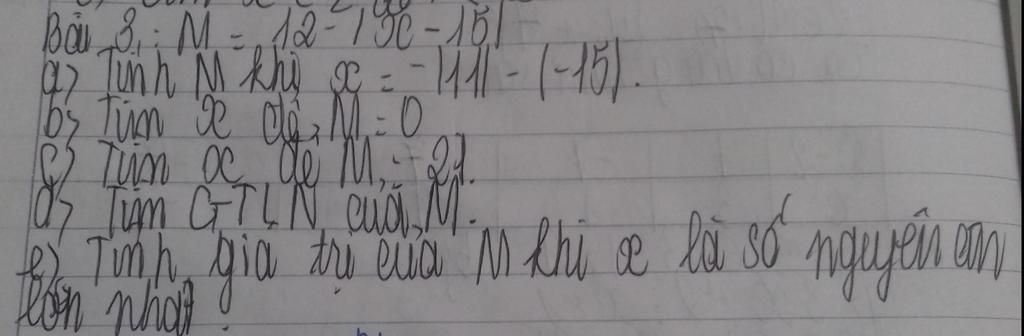 Bài 3: M = 12 - |x - 15|
a) Tính M khi x = -|11| - (-15).
b) Tìm x để M = 0
c) Tìm x để M = -21.
d) Tìm GTLN của M.
e) Tính giá trị của M khi x là số nguyên âm
lớn nhất.